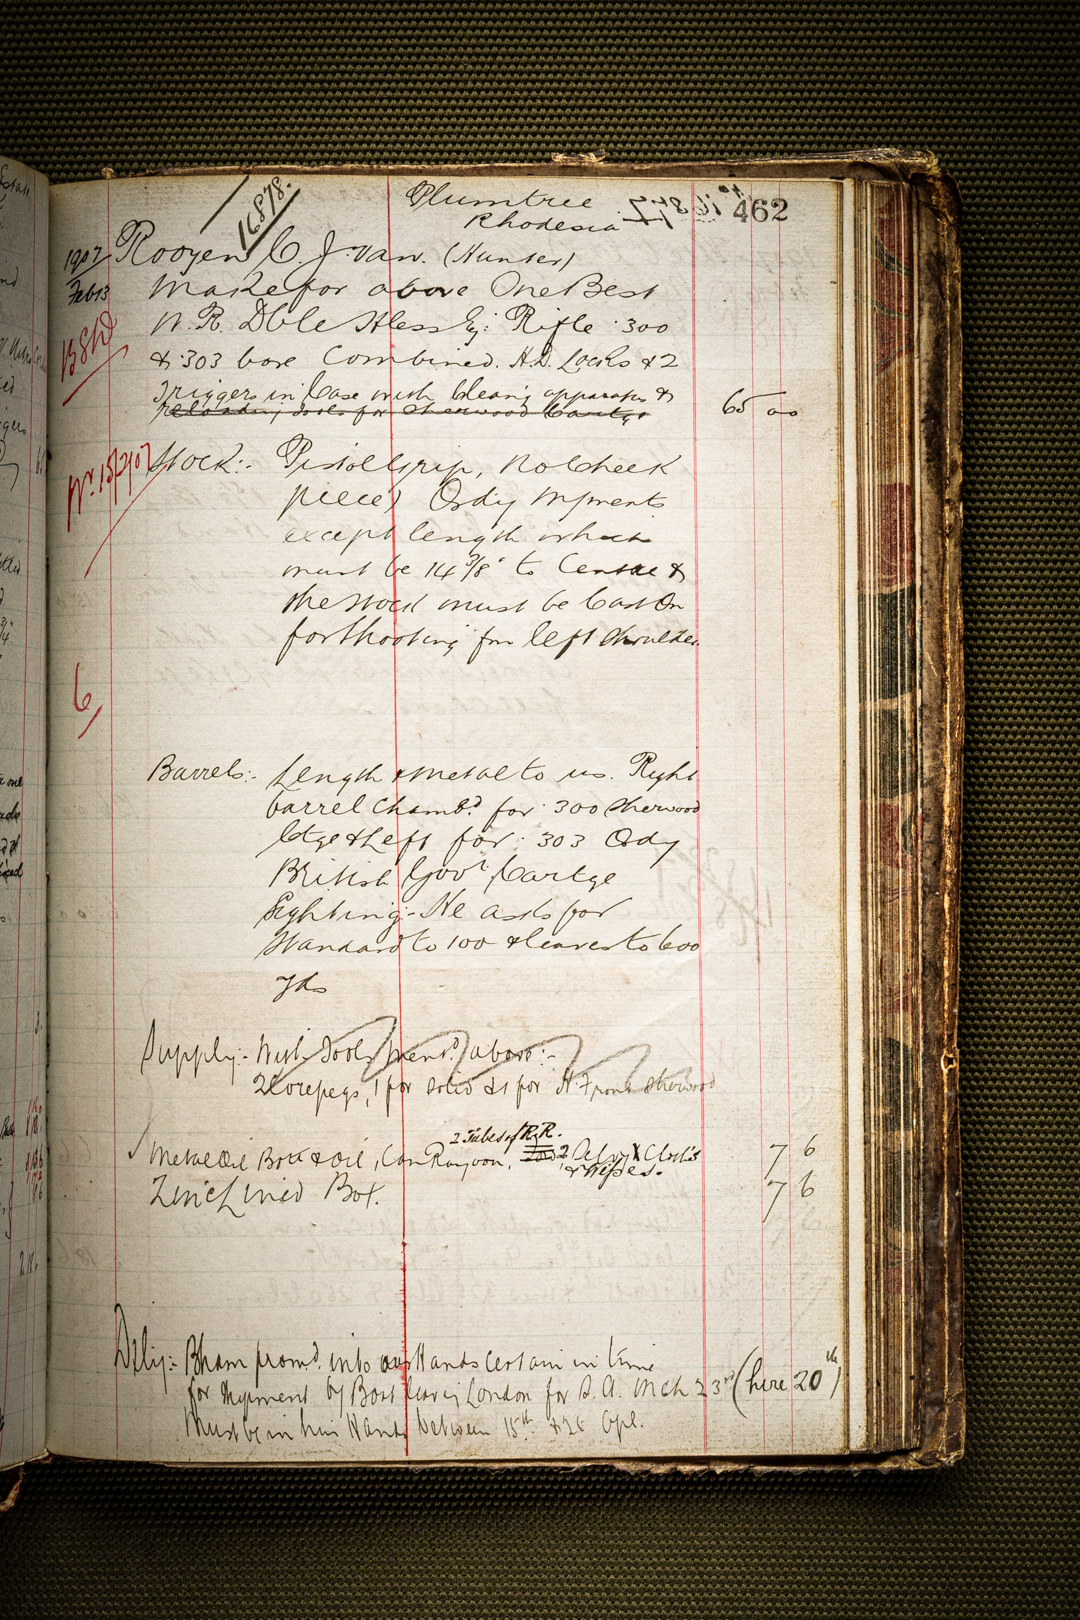 16878.
Plumtree
Rhodesia
462
1907 Rooyen C. J. van. (Hunter)
Feb 13 Make for above One Best
W. R. Dble Hless Ej: Rifle ·300
BSHD
& ·303 bore Combined. H.D. Locks & 2
Triggers in Case with Cleang apparatus &
reloading tools for Sherwood Cartge 65 00
Wr. 15/2/07
Stock:- Pistol grip, No Cheek
piece, Ordy Mments
except length which
must be 14 3/8" to Centre &
the stock must be Cast On
for shooting fm left shoulder.
6
Barrels:- Length & metal to us. Right
barrel Chambd for ·300 Sherwood
Ctge & Left for ·303 Ordy
British Govt Cartge
Sighting:- He asks for
Standard to 100 & leaves to 600
yds
Supply:- With Tools mentd above:-
2 Torepegs, 1 for solid & 1 for H. Front Sherwood
2 Tubes of R.R.
Metal Oil Bottle & oil, Can Rangoon, 2 Selvyt Cloths 7 6
& Wipes.
Zinc Lined Box. 7 6
Dely:- Bham promd into our Hands certain in time
for shipment by Boat leavg London for S.A. Mch 23rd (here 20th)
Must be in his Hands between 15th & 25 Apl.